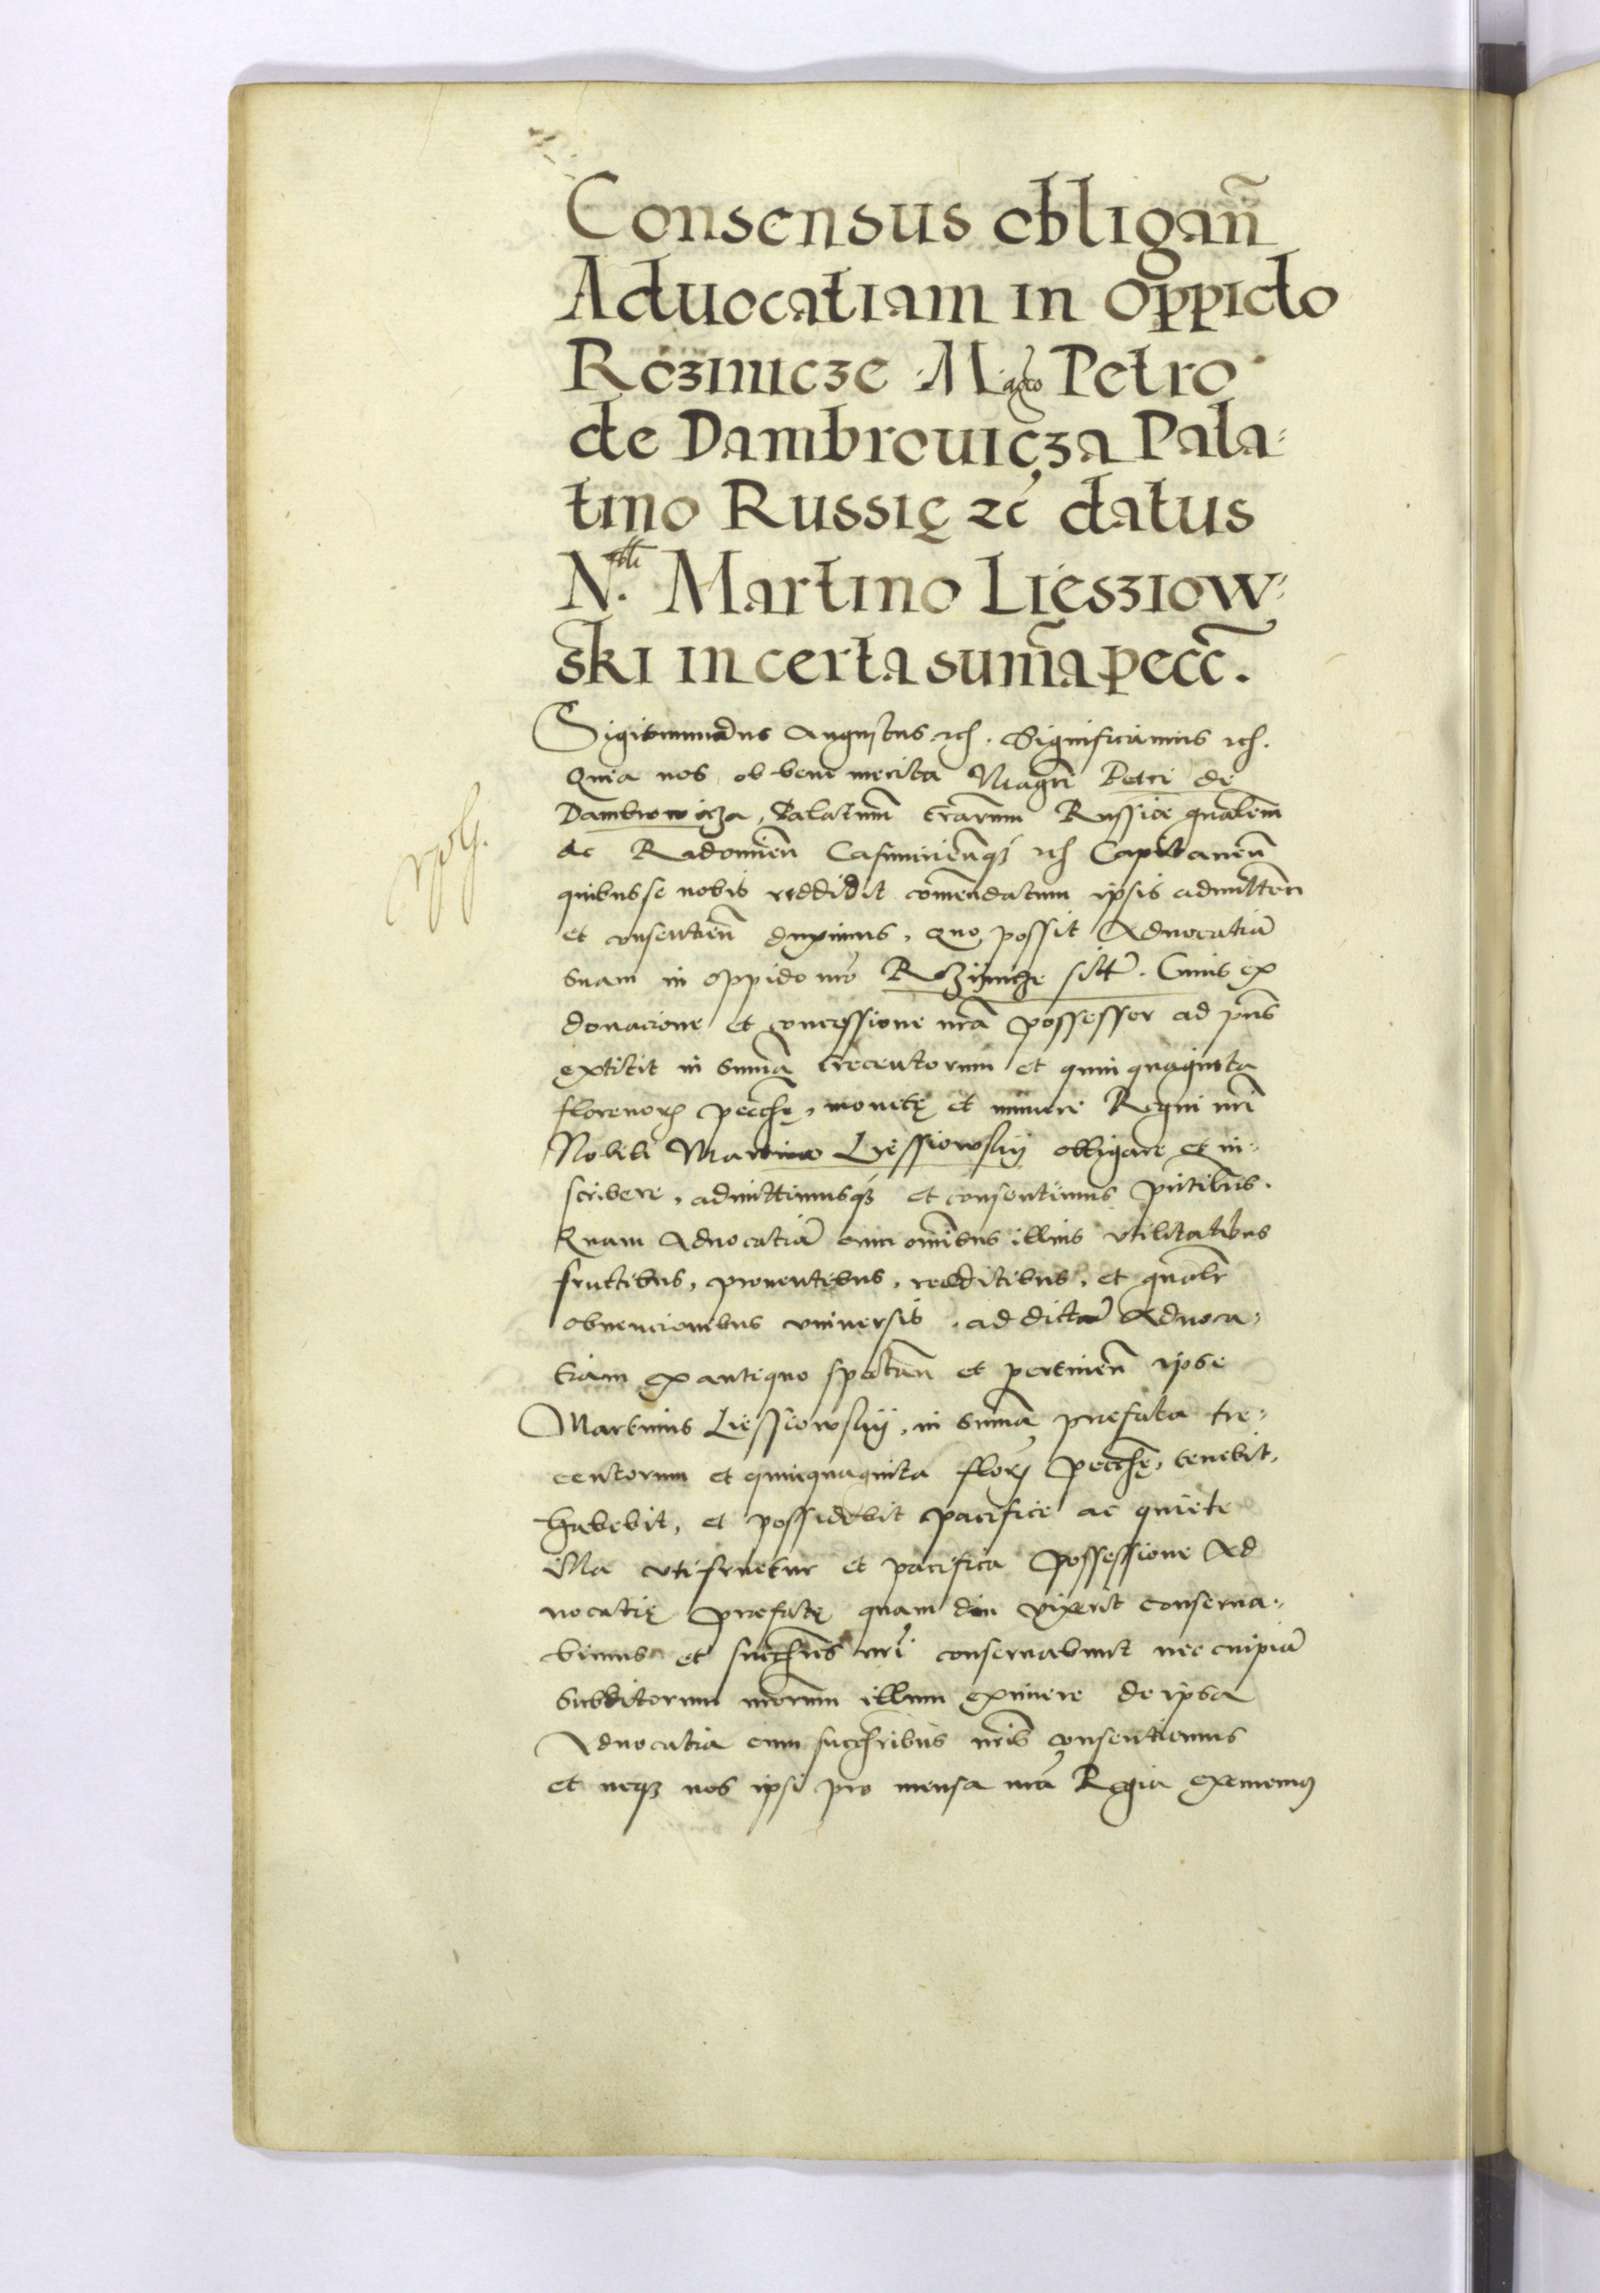 Consensus obligan̄
Aduocatiam in oppido
Rozinicze M.agco Petro
de Dambrouicza Pala=
tino Russię zc̄ datus
N.bili Martino LieszIow=
ski in certa sum̄a pecc̄.
Sigismundus Augustus etc. Significamus etc.
Quia nos ob bene merita Magn̄i Petri de
Dambrowicza, Palatinū tr̄arum Russiae gn̄alem̄
ac Radomien̄ Casimirien̄q3 etc Capitanen̄
quibus se nobis reddidit com̄endatum ipsis admitten̄
et consentien̄ duximus, quo possit Aduocatiā
suam in oppido nr̄o sitā. Cuius ex
donacione et concessione nr̄a possessor ad pn̄s
extitit in sum̄a trecentorum et quinquaginta
florenor pecc̄hę, monetę et numeri Regni nr̄i
Nobili Martino Liessiowskij obligare et in=
scribere, admittimusq3 et consentimus pn̄tibus.
Quam Aduocatiā cum om̄ibus illius vtilitatibus
fructibus, prouentibus, redditibus, et gn̄alr̄
obuencionibus vniuersis, ad dictā Aduoca=
tiam ex antiquo spectan̄ et pertinen̄ ipse
Martinus Liessiowskij, in sum̄a prefata tre=
centorum et quinquaginta flor pecc̄hę, tenebit,
habebit, et possidebit pacifice ac quiete
illa vti fruetur et pacifica possessione Ad
uocatię prefatę quam diu vixerit conserua=
bimus et succ̄res nr̄i conseruabunt nec cuipiā
subditorum nr̄orum illum eximere de ipsa
Aduocatia cum succ̄ribus nr̄is consentiemus
et neq3 nos ipsi pro mensa nr̄a Regia eximemus